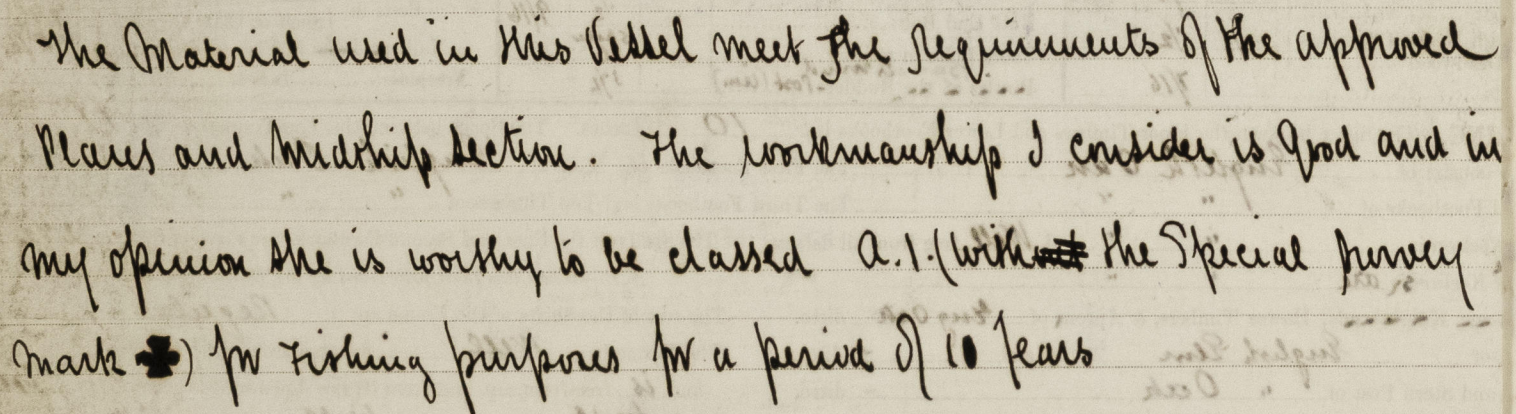 The Material used in this Vessel meet the requirements of the approved
Plans and Midship Section. The workmanship I consider is good and in
my opinion she is worthy to be classed A.1. (with the Special Survey
Mark ✠) for Fishing purposes for a period of 10 Years